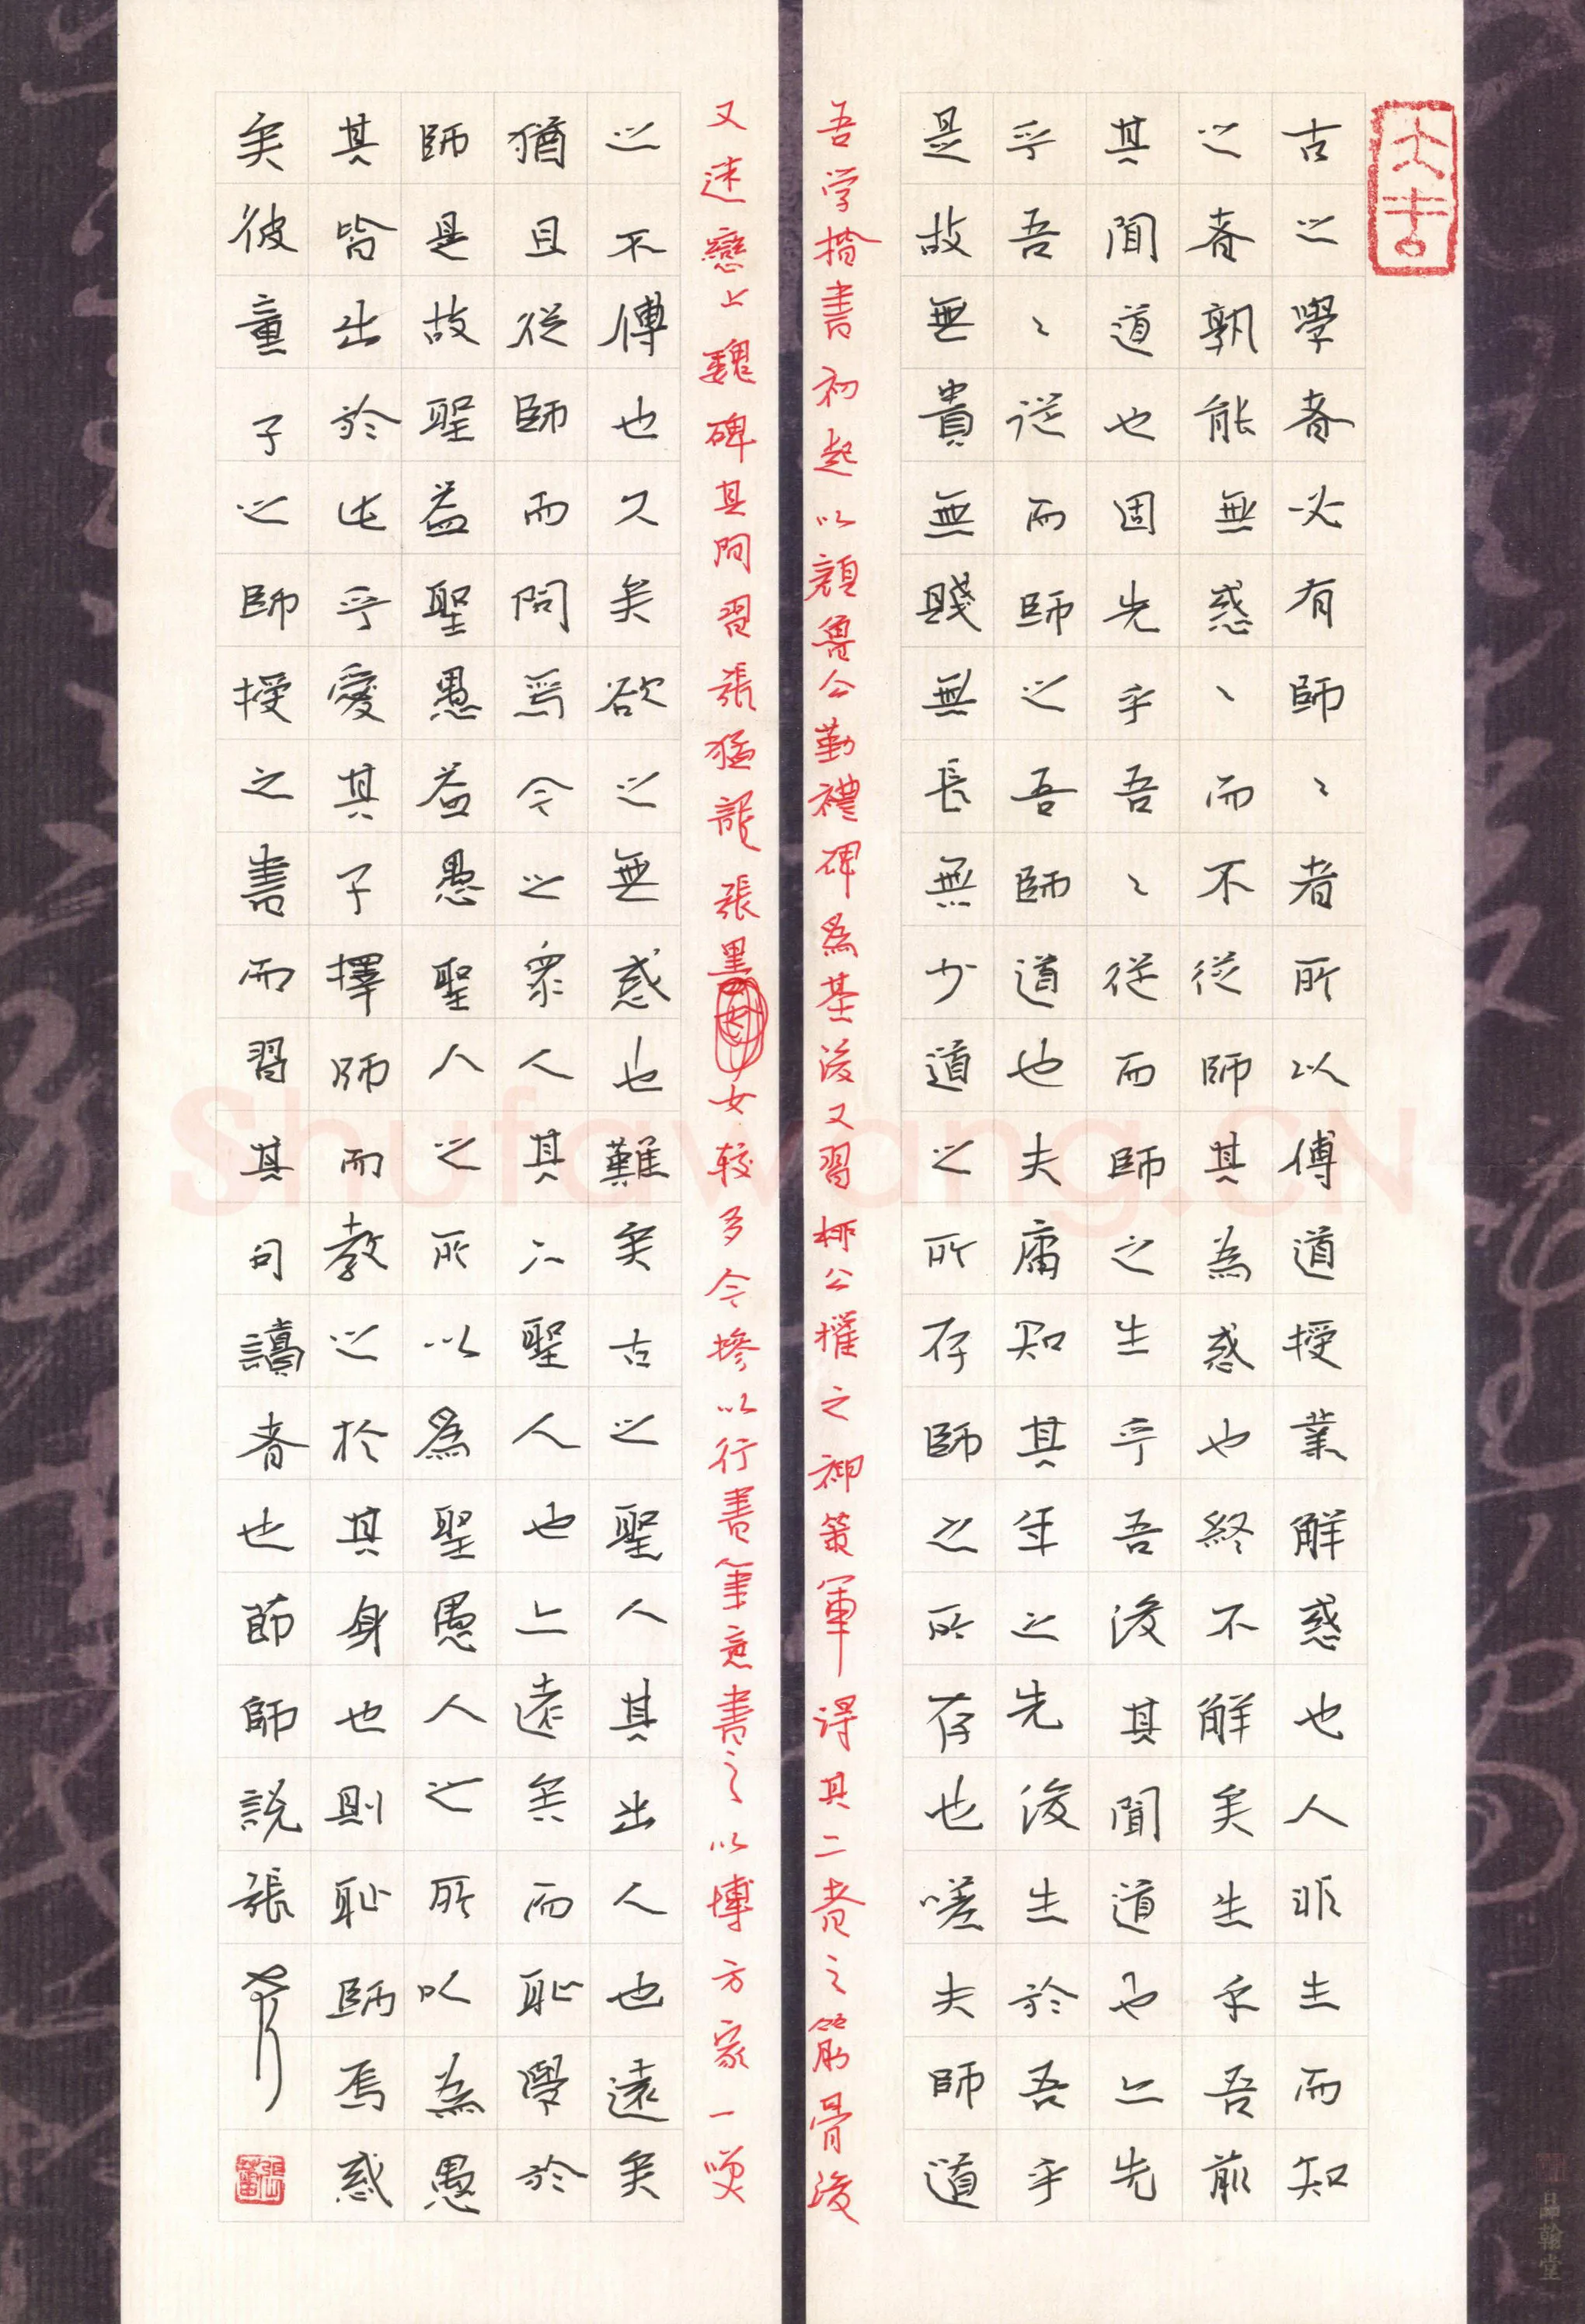 大吉
古之學者必有師〻者所以傅道授業解惑也人非生而知
之者孰能無惑丶而不從師其為惑也終不解矣生乎吾前
其聞道也固先乎吾〻從而師之生乎吾後其聞道也亦先
乎吾〻從而師之吾師道也夫庸知其年之先後生於吾乎
是故無貴無賤無長無少道之所存師之所存也嗟夫師道
吾学楷書初起以顏魯公勤禮碑為基後又習柳公權之神策軍得其二者之筋骨後
又迷戀上魏碑其間習張猛龍張黑女較多今摻以行書筆意書之以博方家一笑
之不傅也久矣欲之無惑也難矣古之聖人其出人也遠矣
猶且從師而問焉今之眾人其下聖人也亦遠矣而恥學於
師是故聖益聖愚益愚聖人之所以為聖愚人之所以為愚
其皆出於此乎愛其子擇師而教之於其身也則恥師焉惑
矣彼童子之師授之書而習其句讀者也節師說張
品翰堂
Shufawang.CN